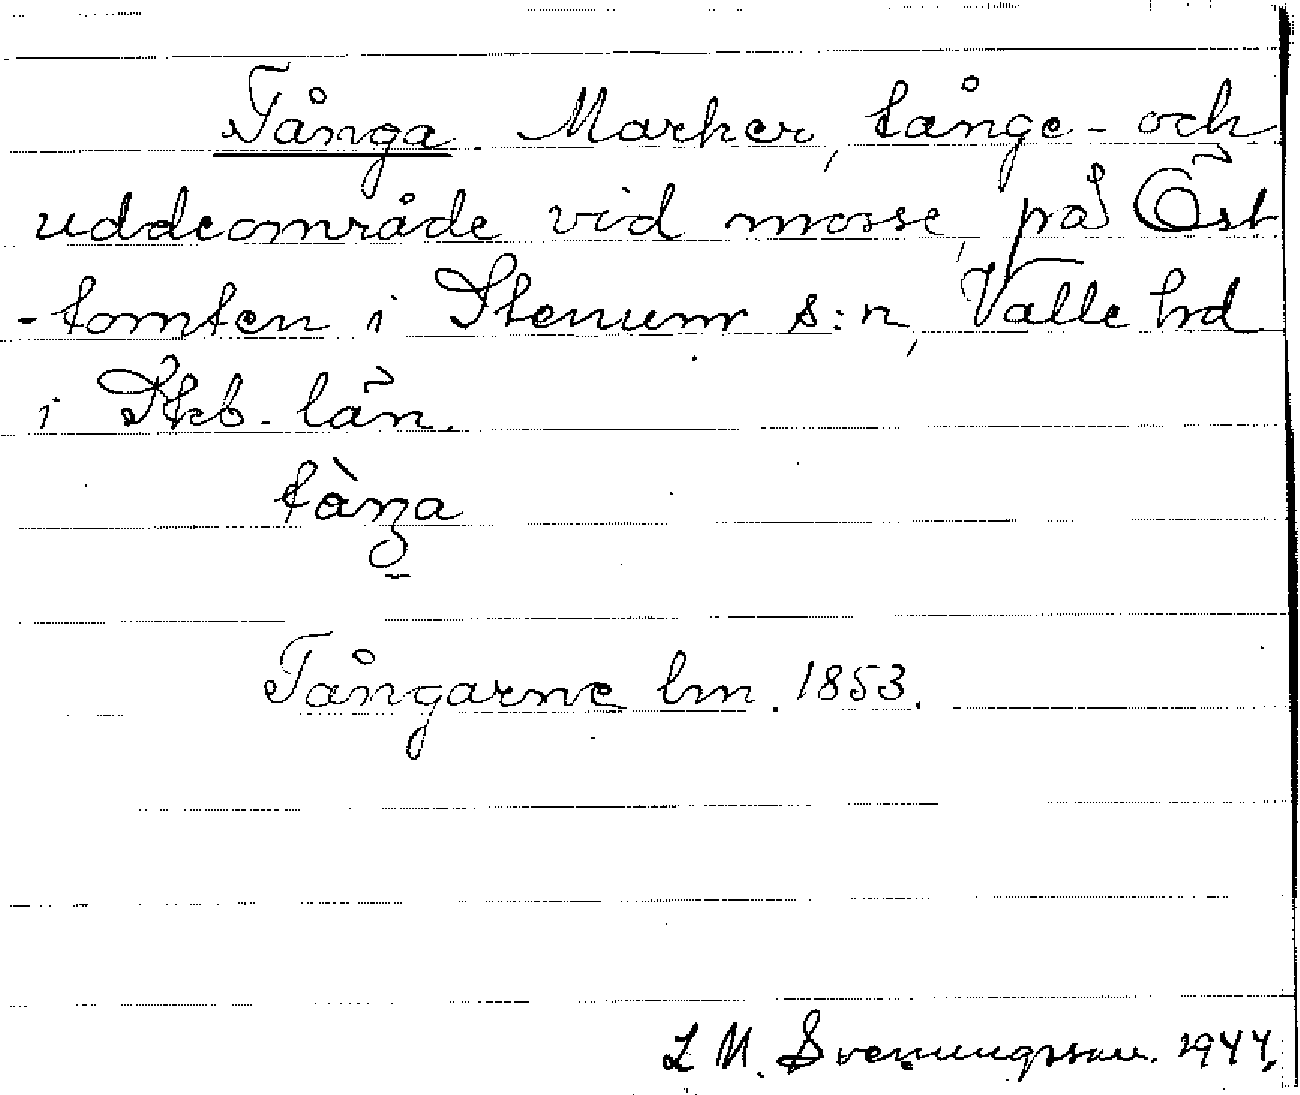 Tånga Marker, tånge- och
uddeområde vid mosse, på Öst
-tomten i Stenum s:n, Valle hd
i Skb. län.
tàŋa
Tångarne lm. 1853.
L M. Svenungsson. 1944.